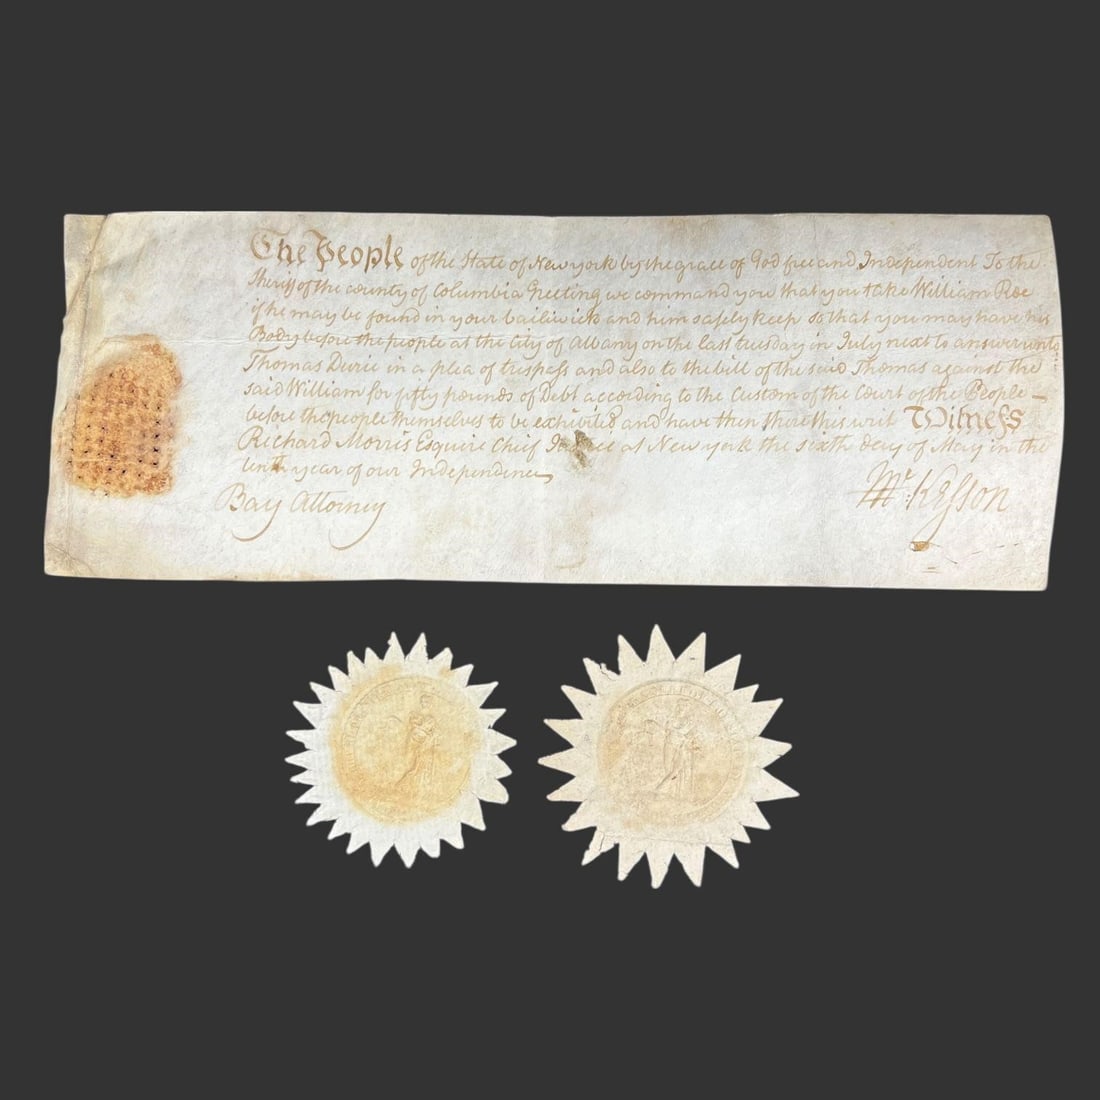 The People of the State of New york by the grace of God free and Independent To the
Sheriff of the county of Columbia Greeting we command you that you take William Roe
if he may be found in your bailiwick and him safely keep so that you may have his
Body before the people at the City of Albany on the last tuesday in July next to answer unto
Thomas Durie in a plea of trespass and also to the bill of the said Thomas against the
said William for fifty pounds of Debt according to the Custom of the Court of the People
before the people themselves to be exhibited and have then there this writ Witness
Richard Morris Esquire Chief Justice at New york the sixth day of May in the
tenth year of our Independence
Bay Attorney
McKesson